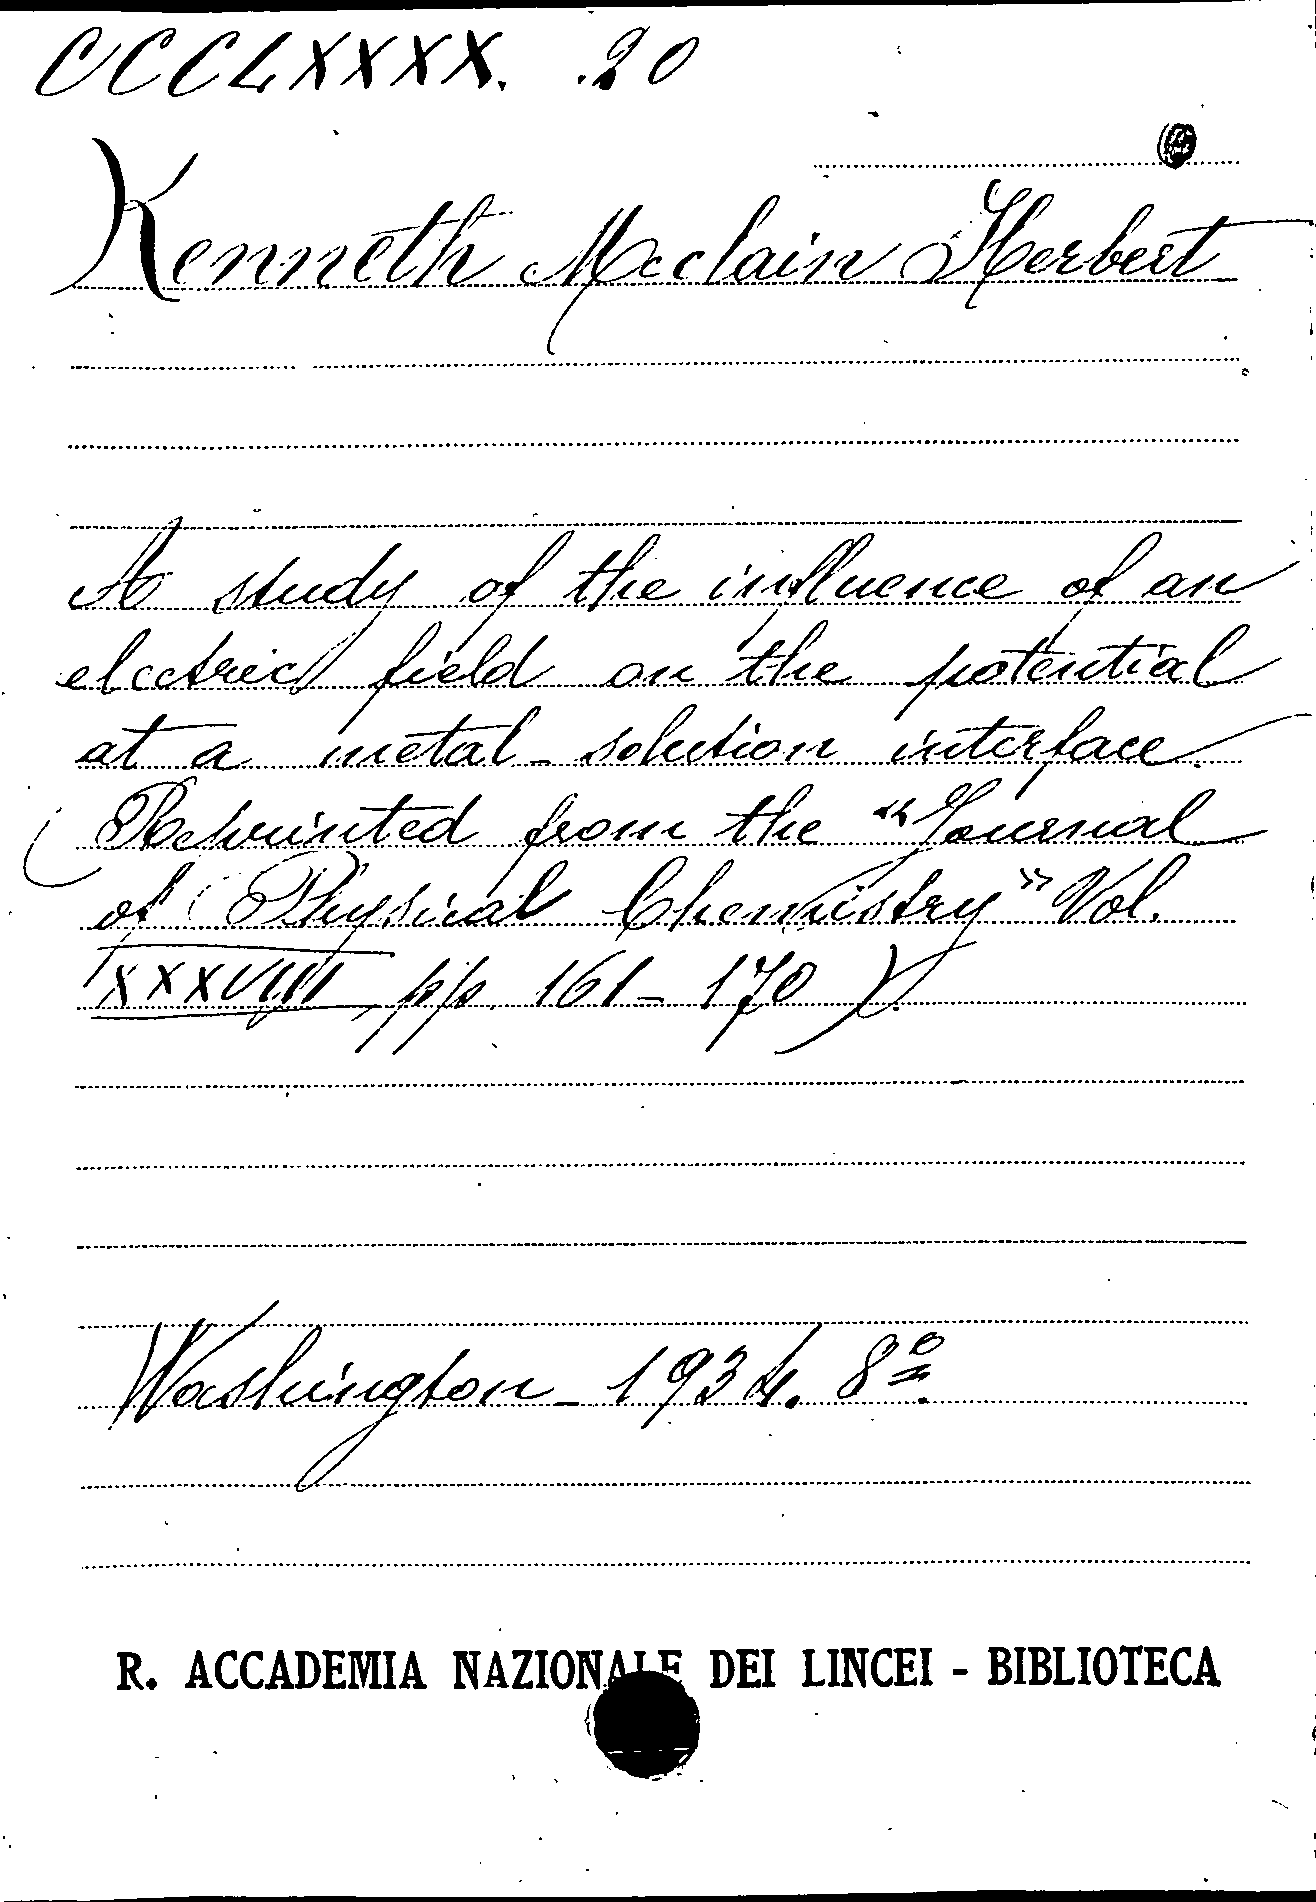 CCCLXXXX. .20
Kenneth Mcclain Herbert
A study of the influence of an
electric field on the potential
at a metal-solution interface.
(Reprinted from the "Journal
of Physical Chemistry" Vol.
XXXVIII, pp. 161-170).
Washington - 1934. 8º.
R. ACCADEMIA NAZIONALE DEI LINCEI - BIBLIOTECA